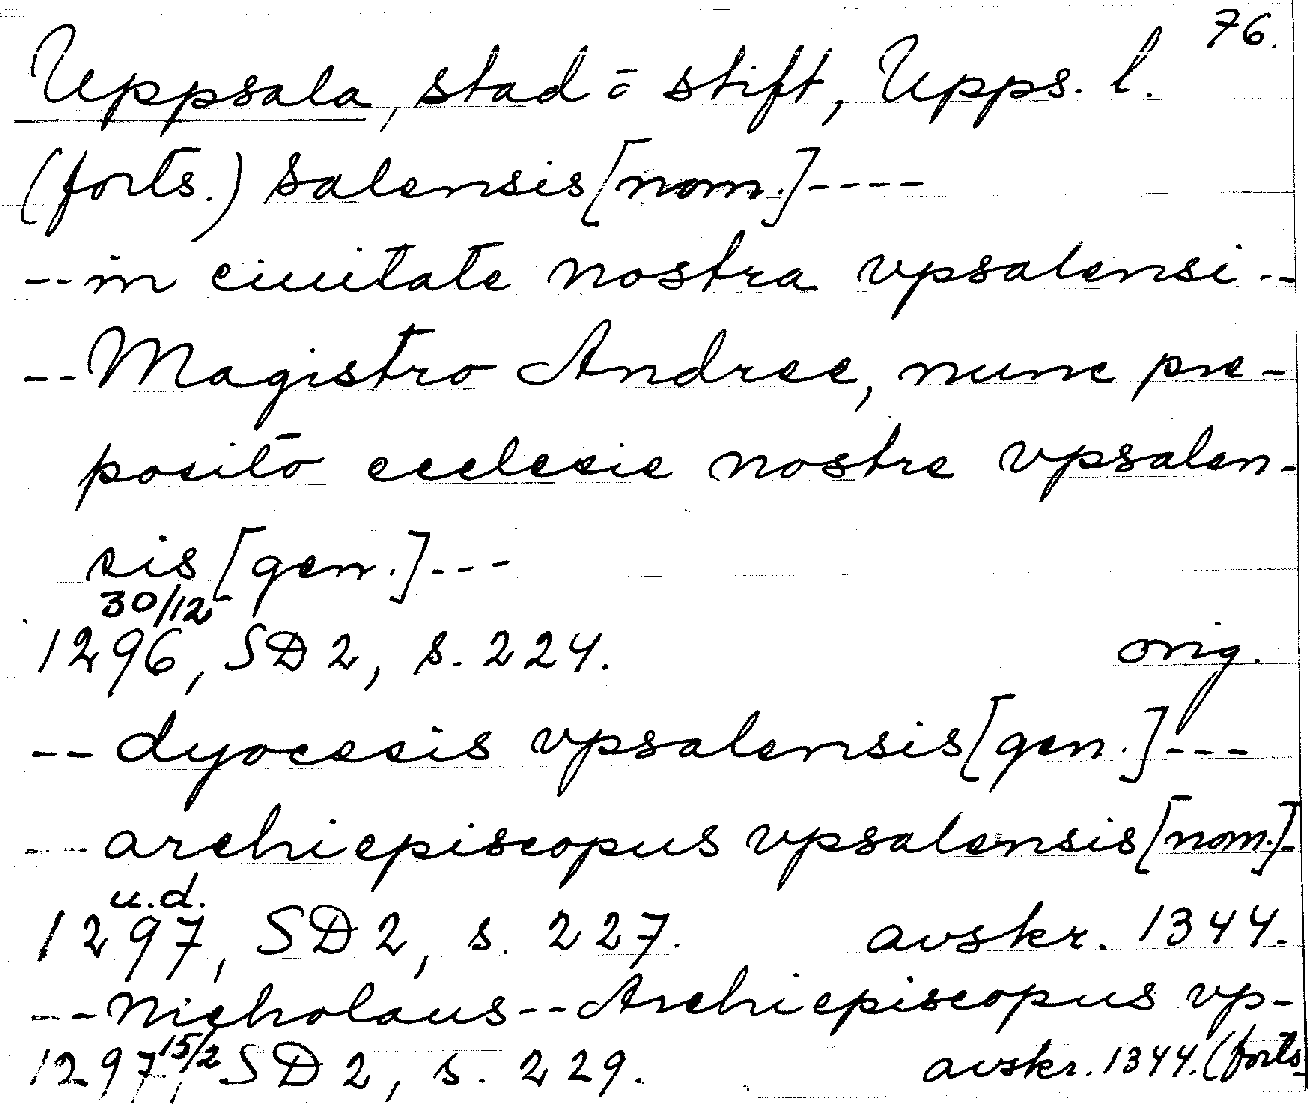 76.
Uppsala, stad o stift, Upps. l.
(forts.) salensis [nom.]----
--in ciuitate nostra vpsalensi--
--Magistro Andree, nunc pre-
posito ecclesie nostre vpsalen-
sis [gen.]---
30/12
1296, SD 2, s. 224. orig.
--dyocesis vpsalensis [gen.]---
---archiepiscopus vpsalensis [nom.]-
u.d.
1297, SD 2, s. 227. avskr. 1344.
--Nicholaus--Archiepiscopus vp-
1297 15/2, SD 2, s. 229. avskr. 1344. (forts.